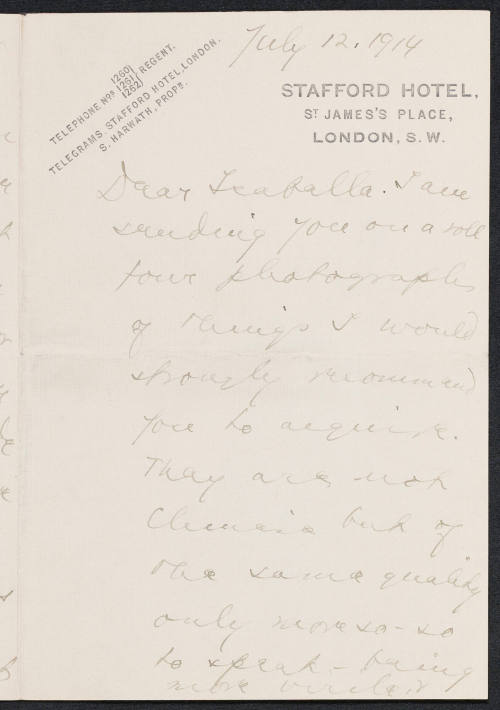 July 12. 1914
TELEPHONE Nos 1260 1261 1262 REGENT.
TELEGRAMS, STAFFORD HOTEL, LONDON.
S. HARWATH, PROPR.
STAFFORD HOTEL,
ST JAMES'S PLACE,
LONDON, S.W.
Dear Isabella. I am
sending you on a roll
four photographs
of things I would
strongly recommend
you to acquire.
They are not
Chinese but of
the same quality
only more so - so
to speak - being
more